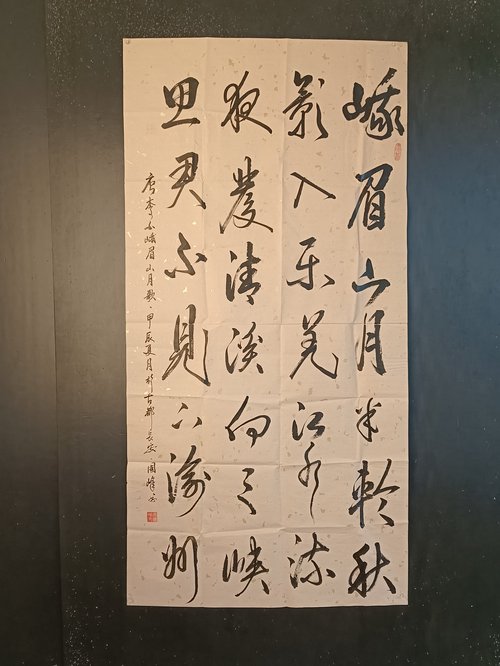 峨眉山月半輪秋
影入平羌江水流
夜發清溪向三峽
思君不見下渝州
唐李白峨眉山月歌·甲辰夏月於古都長安